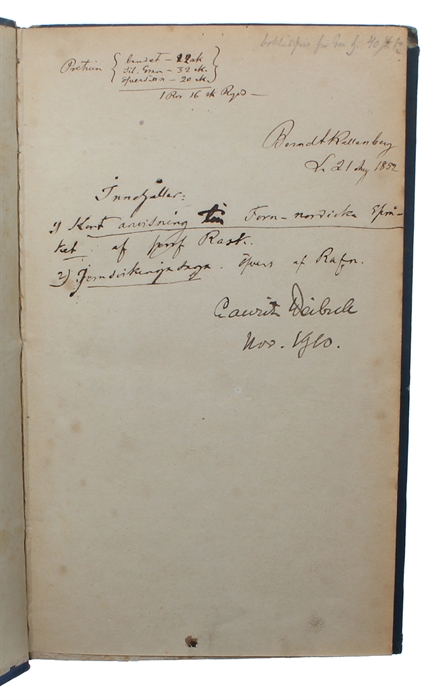 Pretium { bandet – 22 sk
til. Exem – 32 sk.
öfversätt – 20 sk. }
1 Rdr 16 sk Rgds –
Berndt Kellenberg
L. 21 Aug 1852
Innehåller:
1) Kort anvisning till Forn-nordiska Språ-
ket af prof Rask.
2) Jomsvikingasaga. öfvers af Rafn.
Lauritz Weibull
Nov. 1910.